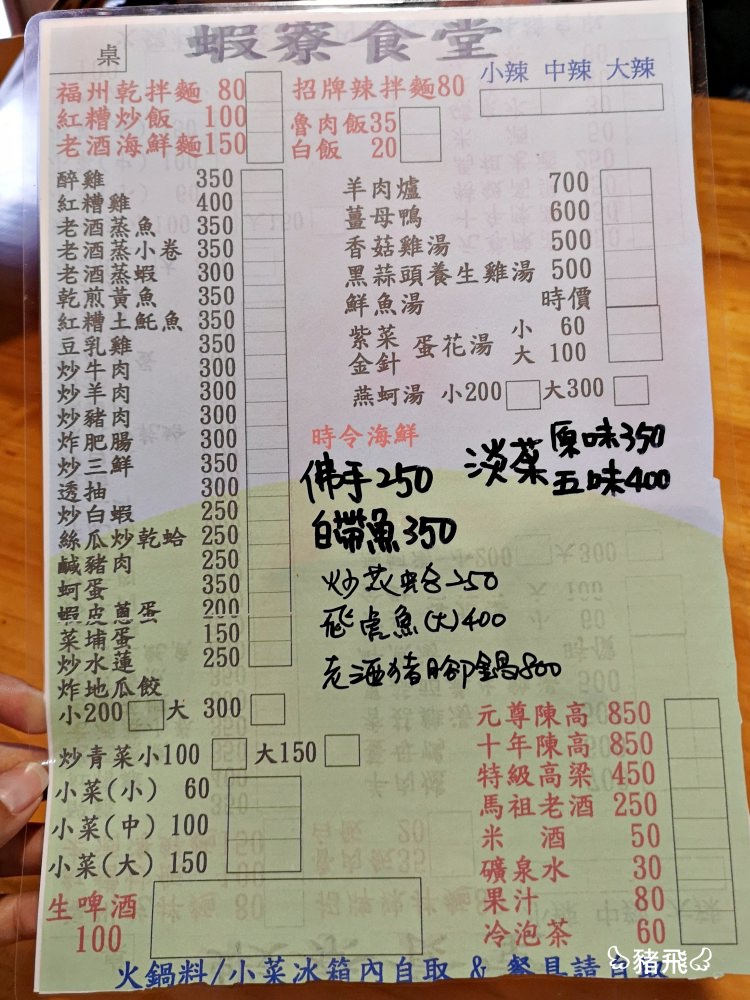 桌
蝦寮食堂
福州乾拌麵 80
紅糟炒飯 100
老酒海鮮麵150
招牌辣拌麵80
小辣 中辣 大辣
魯肉飯35
白飯 20
醉雞 350
紅糟雞 400
老酒蒸魚 350
老酒蒸小卷 350
老酒蒸蝦 300
乾煎黃魚 350
紅糟土魠魚 350
豆乳雞 350
炒牛肉 300
炒羊肉 300
炒豬肉 300
炸肥腸 300
炒三鮮 350
透抽 300
炒白蝦 250
絲瓜炒乾蛤 250
鹹豬肉 250
蚵蛋 350
蝦皮蔥蛋 200
菜埔蛋 150
炒水蓮 250
炸地瓜餃
小200 大 300
炒青菜小100 大150
小菜(小) 60
小菜(中) 100
小菜(大) 150
生啤酒
100
羊肉爐 700
薑母鴨 600
香菇雞湯 500
黑蒜頭養生雞湯 500
鮮魚湯 時價
紫菜 蛋花湯 小 60
金針 大 100
燕蚵湯 小200 大300
時令海鮮
佛手250
淡菜 原味350
五味400
白帶魚350
炒花蛤250
飛虎魚(大)400
老酒豬腳鍋800
元尊陳高 850
十年陳高 850
特級高粱 450
馬祖老酒 250
米 酒 50
礦泉水 30
果汁 80
冷泡茶 60
火鍋料/小菜冰箱內自取 & 餐具請自取
豬飛